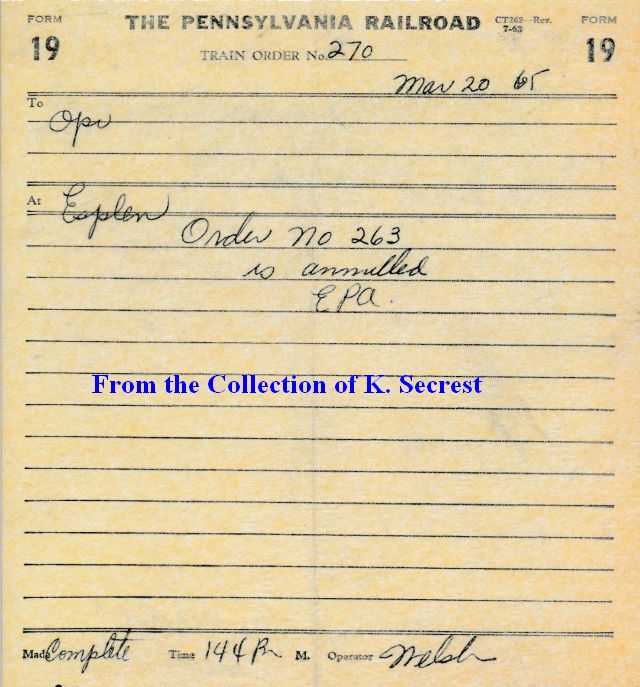 FORM THE PENNSYLVANIA RAILROAD CT262—Rev. 7-63 FORM
19 TRAIN ORDER No. 270 19
Mar 20 65
To
Opr
At Esplen
Order No 263
is annulled
EPA.
From the Collection of K. Secrest
Made Complete Time 144 P M. Operator Welsh